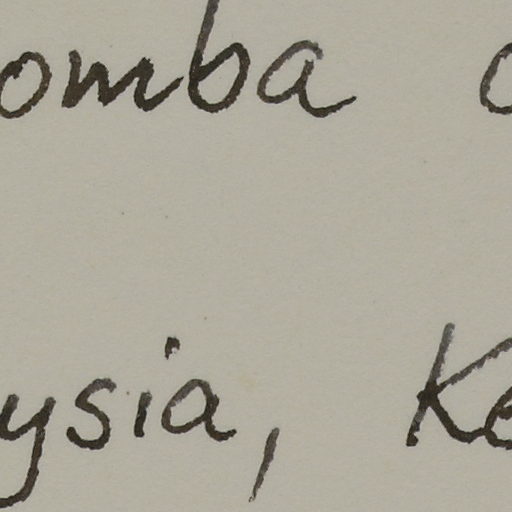 omba
ysia, Ke